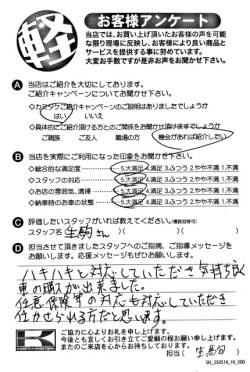 軽
お客様アンケート
当店では、お買い上げ頂いたお客様の声を可能
な限り現場に反映し、お客様により良い商品と
サービスを提供する事に努めています。
大変お手数ですが是非お声をお聞かせ下さい。
A 当店はご紹介を大切にしております。
ご紹介キャンペーンについてお聞かせ下さい。
◇カミタケご紹介キャンペーンのご説明はありましたでしょうか
はい いいえ
◇具体的にご紹介頂ける方とのご関係をお聞かせ頂けますでしょうか
ご親族 ご友人 職場の方 機会があれば紹介したい
B 当店を実際にご利用になった印象をお聞かせ下さい。
◇総合的な満足度 5.大満足 4.満足 3.ふつう 2.やや不満 1.不満
◇スタッフの対応 5.大満足 4.満足 3.ふつう 2.やや不満 1.不満
◇お店の雰囲気、清掃 5.大満足 4.満足 3.ふつう 2.やや不満 1.不満
◇納車時のお車の状態 5.大満足 4.満足 3.ふつう 2.やや不満 1.不満
C 評価したいスタッフがいれば教えてください。(複数回答可)
スタッフ名( 生駒さん )( )( )
D 担当させて頂きましたスタッフへのご指摘、ご指導メッセージを
お願いします。応援メッセージもぜひお願いします。
ハキハキと対応していただき気持ち良く
車の購入が出来ました。
任意保険等の対応も対応していただき
任かせられる方だと思います。
ご協力に心よりお礼を申し上げます。
今後とも宜しくお引き立てご愛顧の程お願い申し上げます。
またのご来店を心からお待ちしております。
担当( )
SH_250516_HI_500